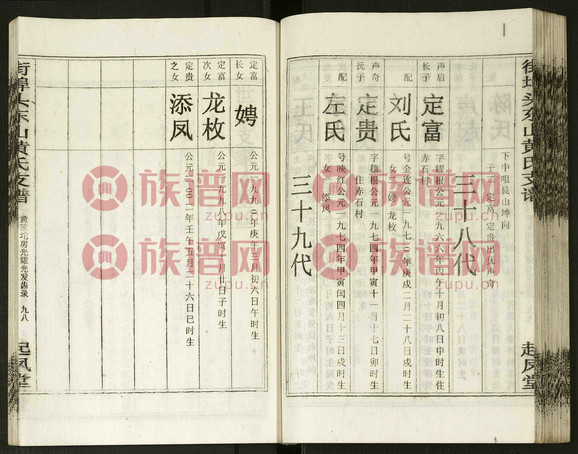 街埠头东山黄氏支谱
起凤堂
下中咀艮山坤向
三十八代
声启
长子
定富
字耀根公元一九六六年丙午十月初八日申时生住
赤石村
配
刘氏
号金莲公元一九七〇年庚戌二月二十八日戌时生
女二娉 龙枚
声奇
抚子
定贵
字稳根公元一九七四年甲寅十一月十七日卯时生
住赤石村
配
左氏
号映红公元一九七四年甲寅闰四月十三日戌时生
女一 添凤
三十九代
定富
长女
娉
公元一九九〇年庚午三月初六日午时生
定富
次女
龙枚
公元一九九八年戊寅二月廿日子时生
定贵
之女
添凤
公元二〇一二年壬辰五月二十六日巳时生
街埠头东山黄氏支谱
九八
起凤堂
族谱网
zupu.cn
族谱网
zupu.cn
族谱网
zupu.cn
族谱网
zupu.cn